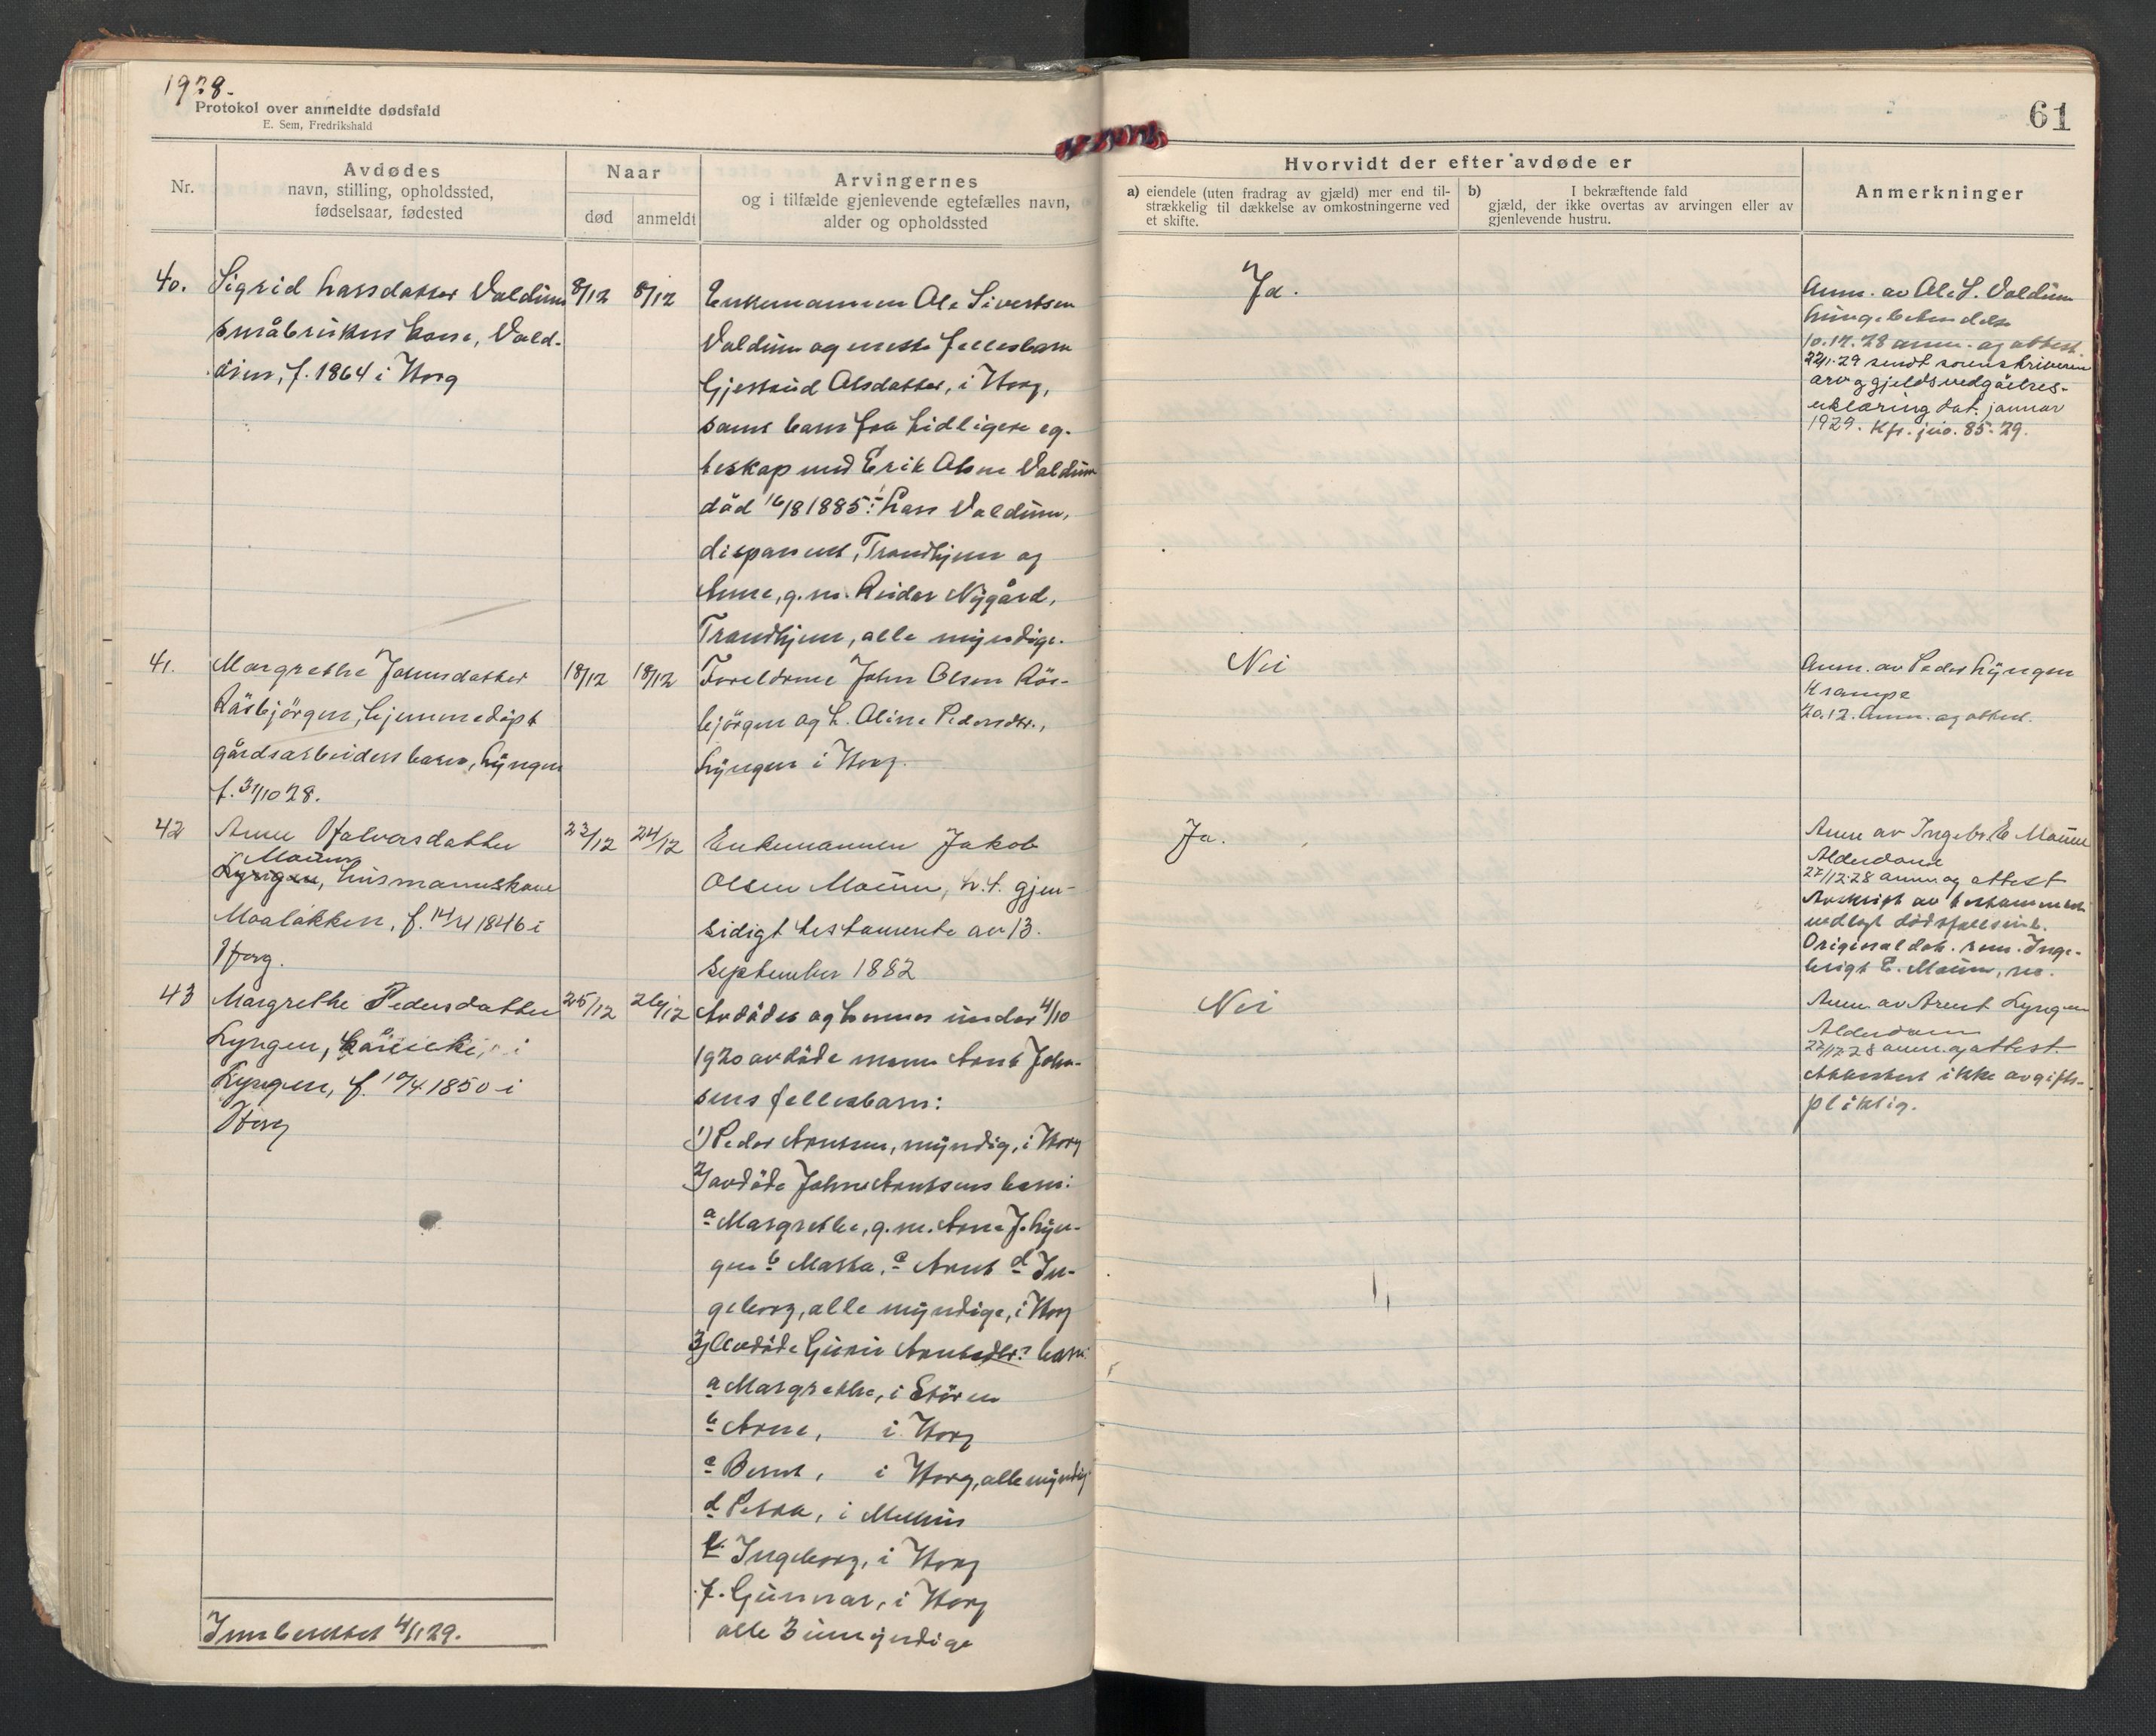 1928.
Protokol over anmeldte dødsfald
E. Sem, Fredrikshald
61
Nr.
Avdødes
navn, stilling, opholdssted,
fødselsaar, fødested
Naar
død
anmeldt
Arvingernes
og i tilfælde gjenlevende egtefælles navn,
alder og opholdssted
Hvorvidt der efter avdøde er
a) eiendele (uten fradrag av gjæld) mer end til-
strækkelig til dækkelse av omkostningerne ved
et skifte.
b) I bekræftende fald
gjæld, der ikke overtas av arvingen eller av
gjenlevende hustru.
Anmerkninger
40.
Sigrid Larsdatter Valdum
småbrukers kone, Vald-
dum, f. 1864 i Horg
8/12
8/12
Enkemannen Ole Sivertsen
Valdum og neste fellesbarn
Gjertrud Olsdatter, i Horg,
samt barn fra tidligere eg-
teskap med Erik Olsen Valdum
död 16/8 1885: Lars Valdum,
disponent, Trondhjem og
Anne, g.m. Reidar Nygård,
Trondhjem, alle myndige.
Ja.
Anm. av Ole S. Valdum
10.12.28 anm. og attest.
22/1-29 sendt sorenskriveren
arv og gjeldsvedgåelses-
erklæring dat. januar
1929. Kfr. jno. 85-29.
41.
Margrethe Johnsdatter
Råsbjörgen, hjemmedöpt
gårdsarbeiders barn, Lyngen
f. 31/10 28.
18/12
18/12
Foreldrene John Olsen Rös-
björgen og h. Oline Pedersdtr.,
Lyngen i Horg.
Nei
Anm. av Peder Lyngen
Krampe
20.12. Anm. og attest.
42
Anne Halvorsdatter
Moum
Lyngen, husmannskone
Moaløkken, f. 14/4 1846 i
Horg.
23/12
24/12
Enkemannen Jakob
Olsen Moum, h.t. gjen-
sidigt testamente av 13.
September 1882
Ja.
Anm av Ingebr. E Moum
Alderdom
27/12 28 anm. og attest
Avskrift av testamentet
vedlagt dödsfallsinb.
Original dok. rem. Inge-
brigt E. Moum, reo.
43
Margrethe Pedersdatter
Lyngen, i
Lyngen, f. 10/4 1850 i
Horg
25/12
26/12
Avdödes og hennes under 4/10
1920 avdöde mann Arnt John-
sens fellesbarn:
1) Peder Arntsen, myndig, i Horg
2) avdöde John Arntsens barn:
a Margrethe, g.m. Arne J. Lyn-
gen b Marta, c Arnt d In-
geborg, alle myndige, i Horg
3) Avdöde Guru Arntsdtr.s barn:
a Margrethe, i Stören
b Arne, i Horg
c Bernt, i Horg, alle myndig
d Petra, i Melhus
e Ingeborg, i Horg
f. Gunnar, i Horg
alle 3 umyndige
Nei
Anm. av Arnt Lyngen
Alderdom
27/12 28 anm. og attest.
Attesten ikke avgifts-
pliktig.
Innberettet 4/1 29.